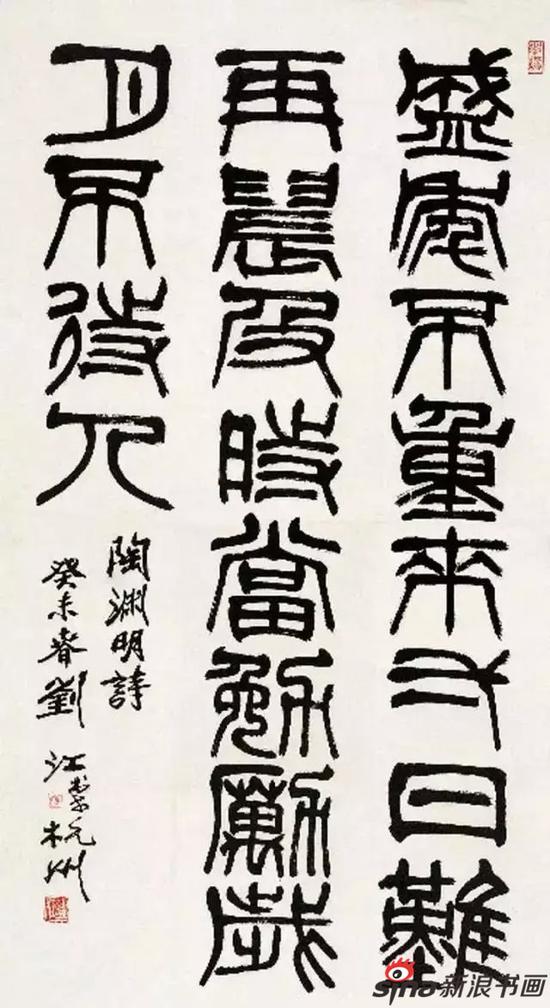 盛年不重來弌日難
再晨及時當勉勵歲
月不待人
陶淵明詩
癸未春劉
江杭州
sina新浪书画